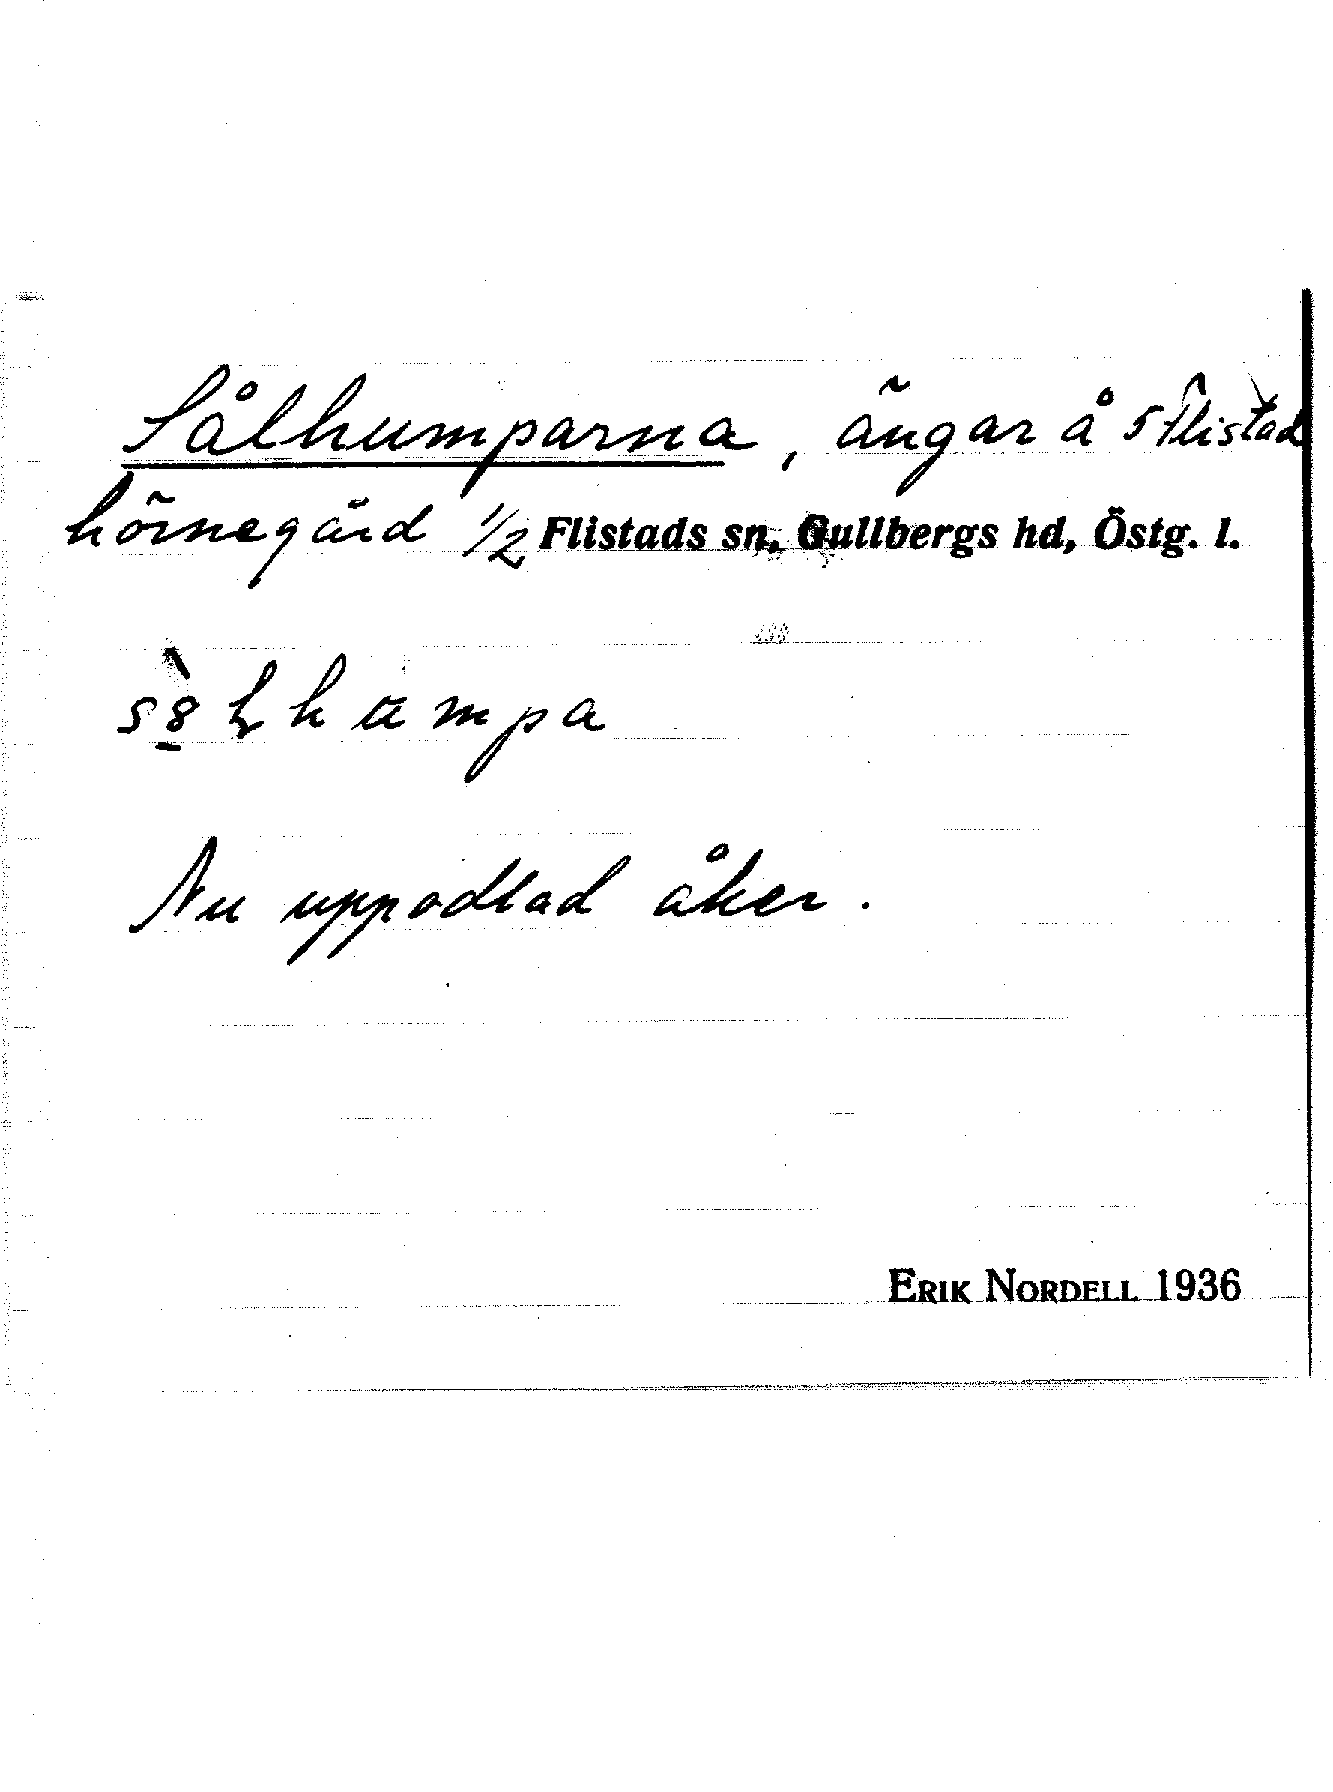 Sålhumparna, ängar å 5 Flistad
hörnegård 1/2 Flistads sn, Gullbergs hd, Östg. l.
Nu uppodlad åker.
ERIK NORDELL 1936